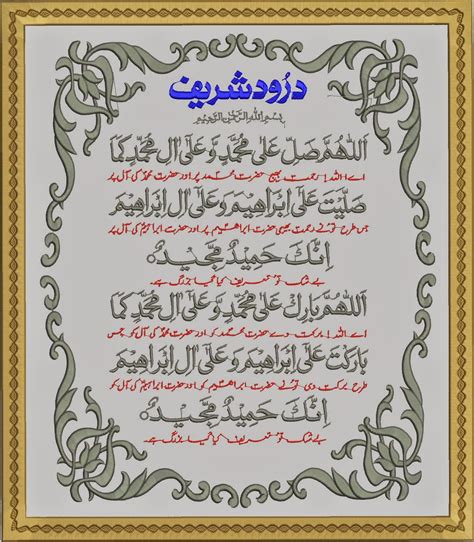 درود شریف
بِسْمِ اللهِ الرَّحْمٰنِ الرَّحِيْمِ
اَللّٰهُمَّ صَلِّ عَلٰى مُحَمَّدٍ وَّ عَلٰٓى اٰلِ مُحَمَّدٍ كَمَا
اے اللہ! رحمت بھیج حضرت محمدؐ پر اور حضرت محمدؐ کی آل پر
صَلَّيْتَ عَلٰٓى اِبْرَاهِيْمَ وَ عَلٰٓى اٰلِ اِبْرَاهِيْمَ
جس طرح تو نے رحمت بھیجی حضرت ابراھیمؑ پر اور حضرت ابراھیمؑ کی آل پر
اِنَّكَ حَمِيْدٌ مَّجِيْدٌ
بے شک تو تعریف کیا گیا بزرگ ہے۔
اَللّٰهُمَّ بَارِكْ عَلٰى مُحَمَّدٍ وَّ عَلٰٓى اٰلِ مُحَمَّدٍ كَمَا
اے اللہ! برکت دے حضرت محمدؐ کو اور حضرت محمدؐ کی آل کو جس
بَارَكْتَ عَلٰٓى اِبْرَاهِيْمَ وَ عَلٰٓى اٰلِ اِبْرَاهِيْمَ
طرح برکت دی تو نے حضرت ابراھیمؑ کو اور حضرت ابراھیمؑ کی آل کو
اِنَّكَ حَمِيْدٌ مَّجِيْدٌ
بے شک تو تعریف کیا گیا بزرگ ہے۔